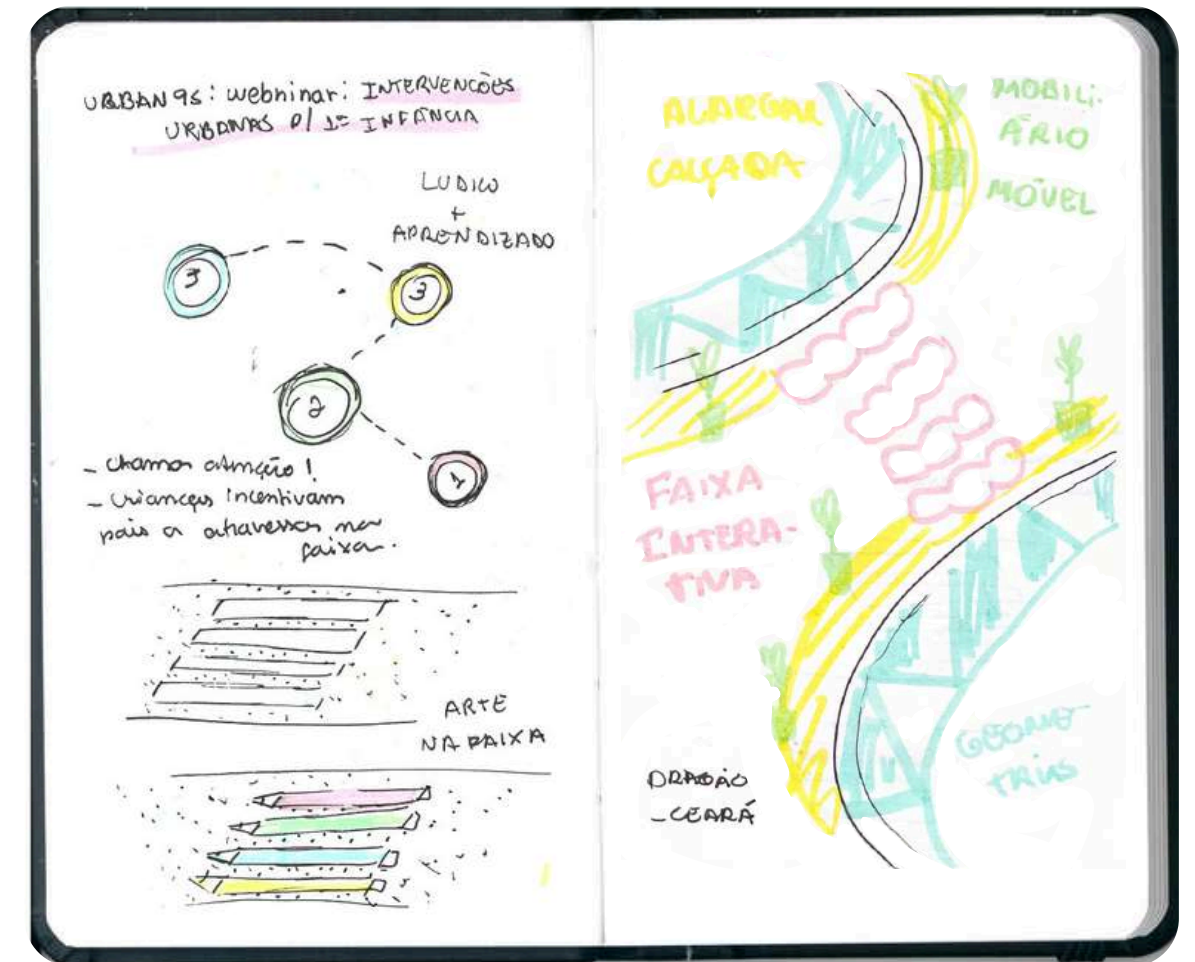 URBAN 95: webninar: INTERVENÇÕES
URBANAS P/ 1ª INFÂNCIA
LUDICO
+
APRENDIZADO
3
3
2
1
- chamar atenção!
- crianças incentivam
pais a atravessar na
faixa.
ARTE
NA FAIXA
ALARGAR
CALÇADA
MOBILI-
ÁRIO
MÓVEL
FAIXA
INTERA-
TIVA
GEOME-
TRIAS
DRAGÃO
- CEARÁ